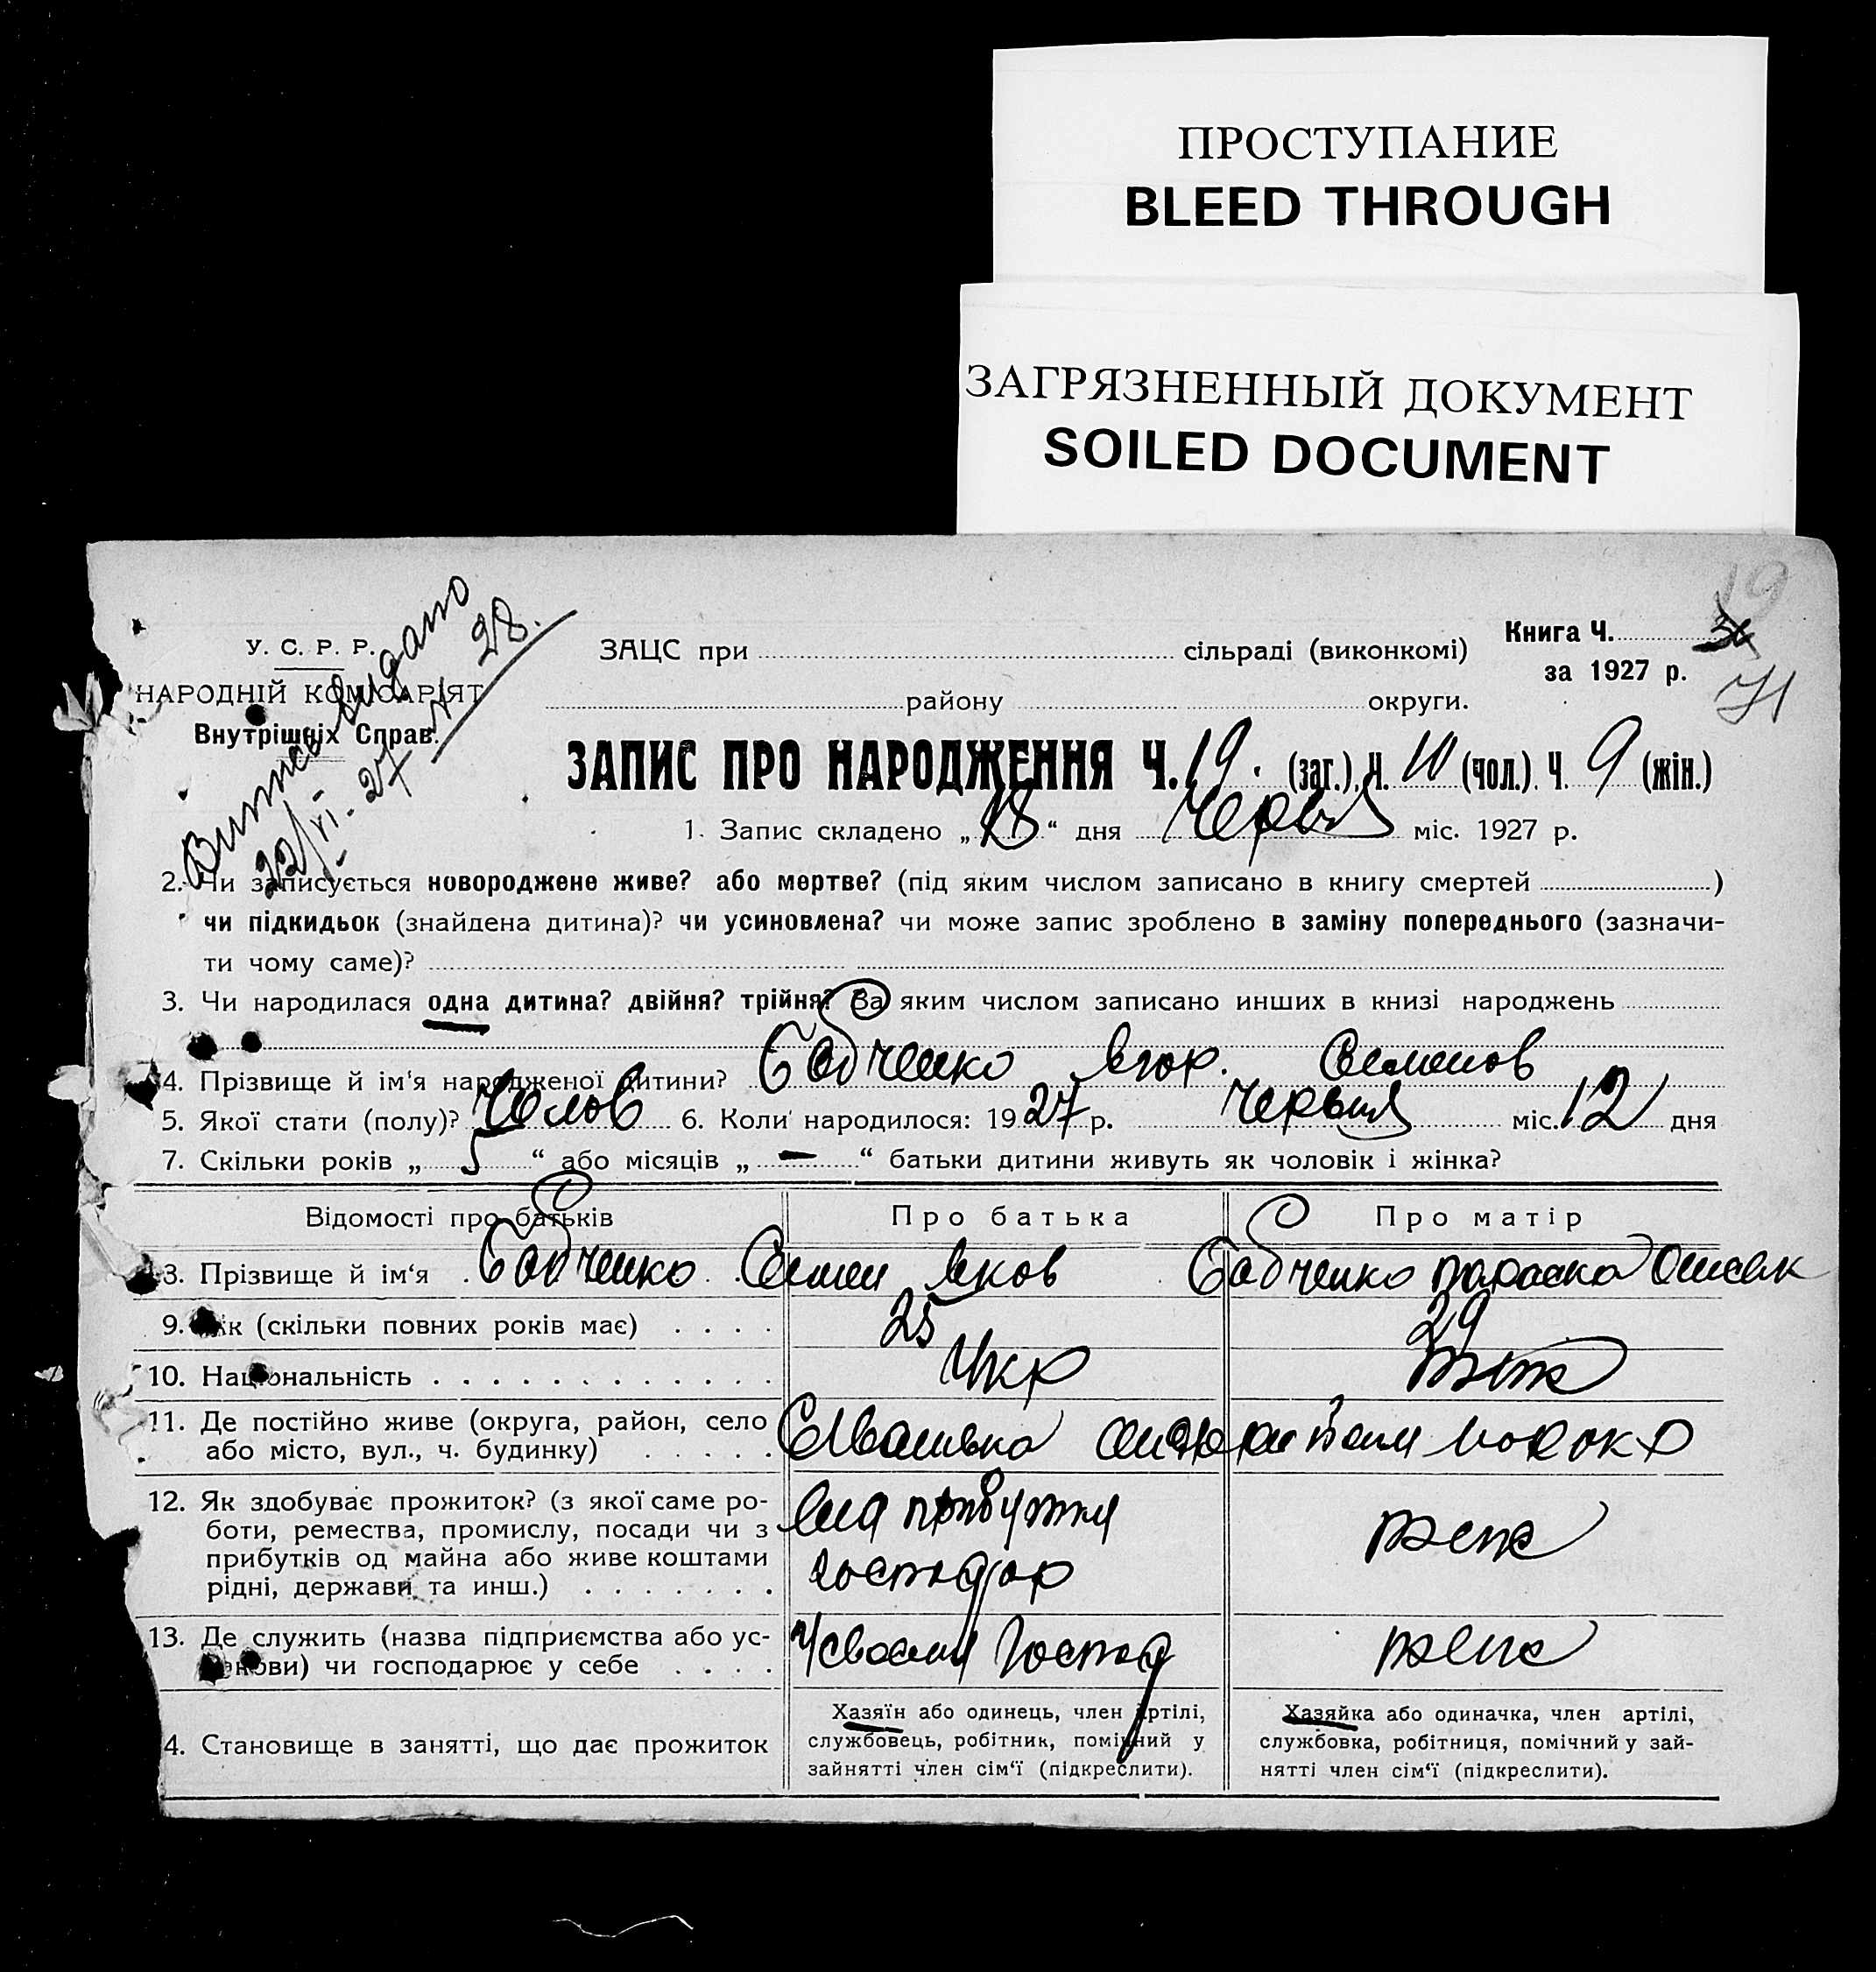 ПРОСТУПАНИЕ
BLEED THROUGH
ЗАГРЯЗНЕННЫЙ ДОКУМЕНТ
SOILED DOCUMENT
19
У. С. Р. Р.
НАРОДНІЙ КОМІСАРІЯТ
Внутрішніх Справ.
Витяг видано
22/VI-27 28.
ЗАЦС при сільраді (виконкомі)
Книга Ч.
за 1927 р.
71
району округи.
ЗАПИС ПРО НАРОДЖЕННЯ Ч. 19. (заг.). Ч. 10 (чол.). Ч. 9 (жін.)
1. Запис складено „18“ дня Червня міс. 1927 р.
2. Чи записується новороджене живе? або мертве? (під яким числом записано в книгу смертей )
чи підкидьок (знайдена дитина)? чи усиновлена? чи може запис зроблено в заміну попереднього (зазначи-
ти чому саме)?
3. Чи народилася одна дитина? двійня? трійня? За яким числом записано инших в книзі народжень
4. Прізвище й ім'я народженої дитини? Бабченко Егор. Семенов
5. Якої стати (полу)? Чолов 6. Коли народилося: 1927 р. Червня міс. 12 дня
7. Скільки років „5“ або місяців „—“ батьки дитини живуть як чоловік і жінка?
Відомості про батьків Про батька Про матір
8. Прізвище й ім‘я Бабченко Семен Яков Бабченко Параска
9. Вік (скільки повних років має) 25 29
10. Національність Укр теж
11. Де постійно живе (округа, район, село
або місто, вул., ч. будинку)
12. Як здобуває прожиток? (з якої саме ро-
боти, ремества, промислу, посади чи з
прибутків од майна або живе коштами
рідні, держави та инш.)
на прибутки
господар
теж
13. Де служить (назва підприємства або ус-
танови) чи господарює у себе
У своем господ
теж
4. Становище в занятті, що дає прожиток
Хазяїн або одинець, член артілі,
службовець, робітник, помічний у
зайнятті член сім‘ї (підкреслити).
Хазяйка або одиначка, член артілі,
службовка, робітниця, помічний у зай-
нятті член сім‘ї (підкреслити).